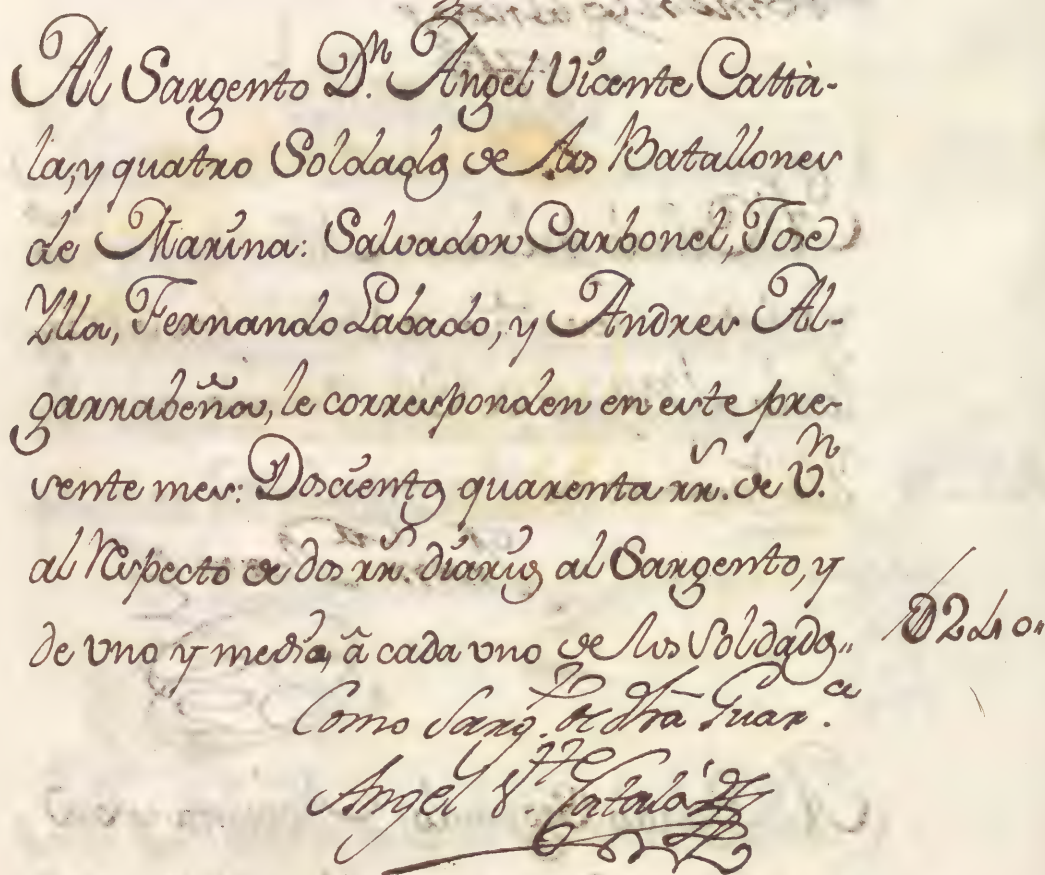 Al Sargento D.ⁿ Angel Vicente Catta-
la, y quatro Soldados de los Batallones
de Marina: Salvador Carbonel, Jose
Ylla, Fernando Labado, y Andres Al-
garrabeña, le corresponden en este pre-
sente mes: Doscientos quarenta rr.ˢ de V.ⁿ
al Respecto de dos rr.ˢ diarios al Sargento, y
de uno y medio, â cada uno de los Soldados„ 240„
Como Sarg.ᵗᵒ de dha Guar.ᵃ
Angel V.ᵗᵉ Catalá